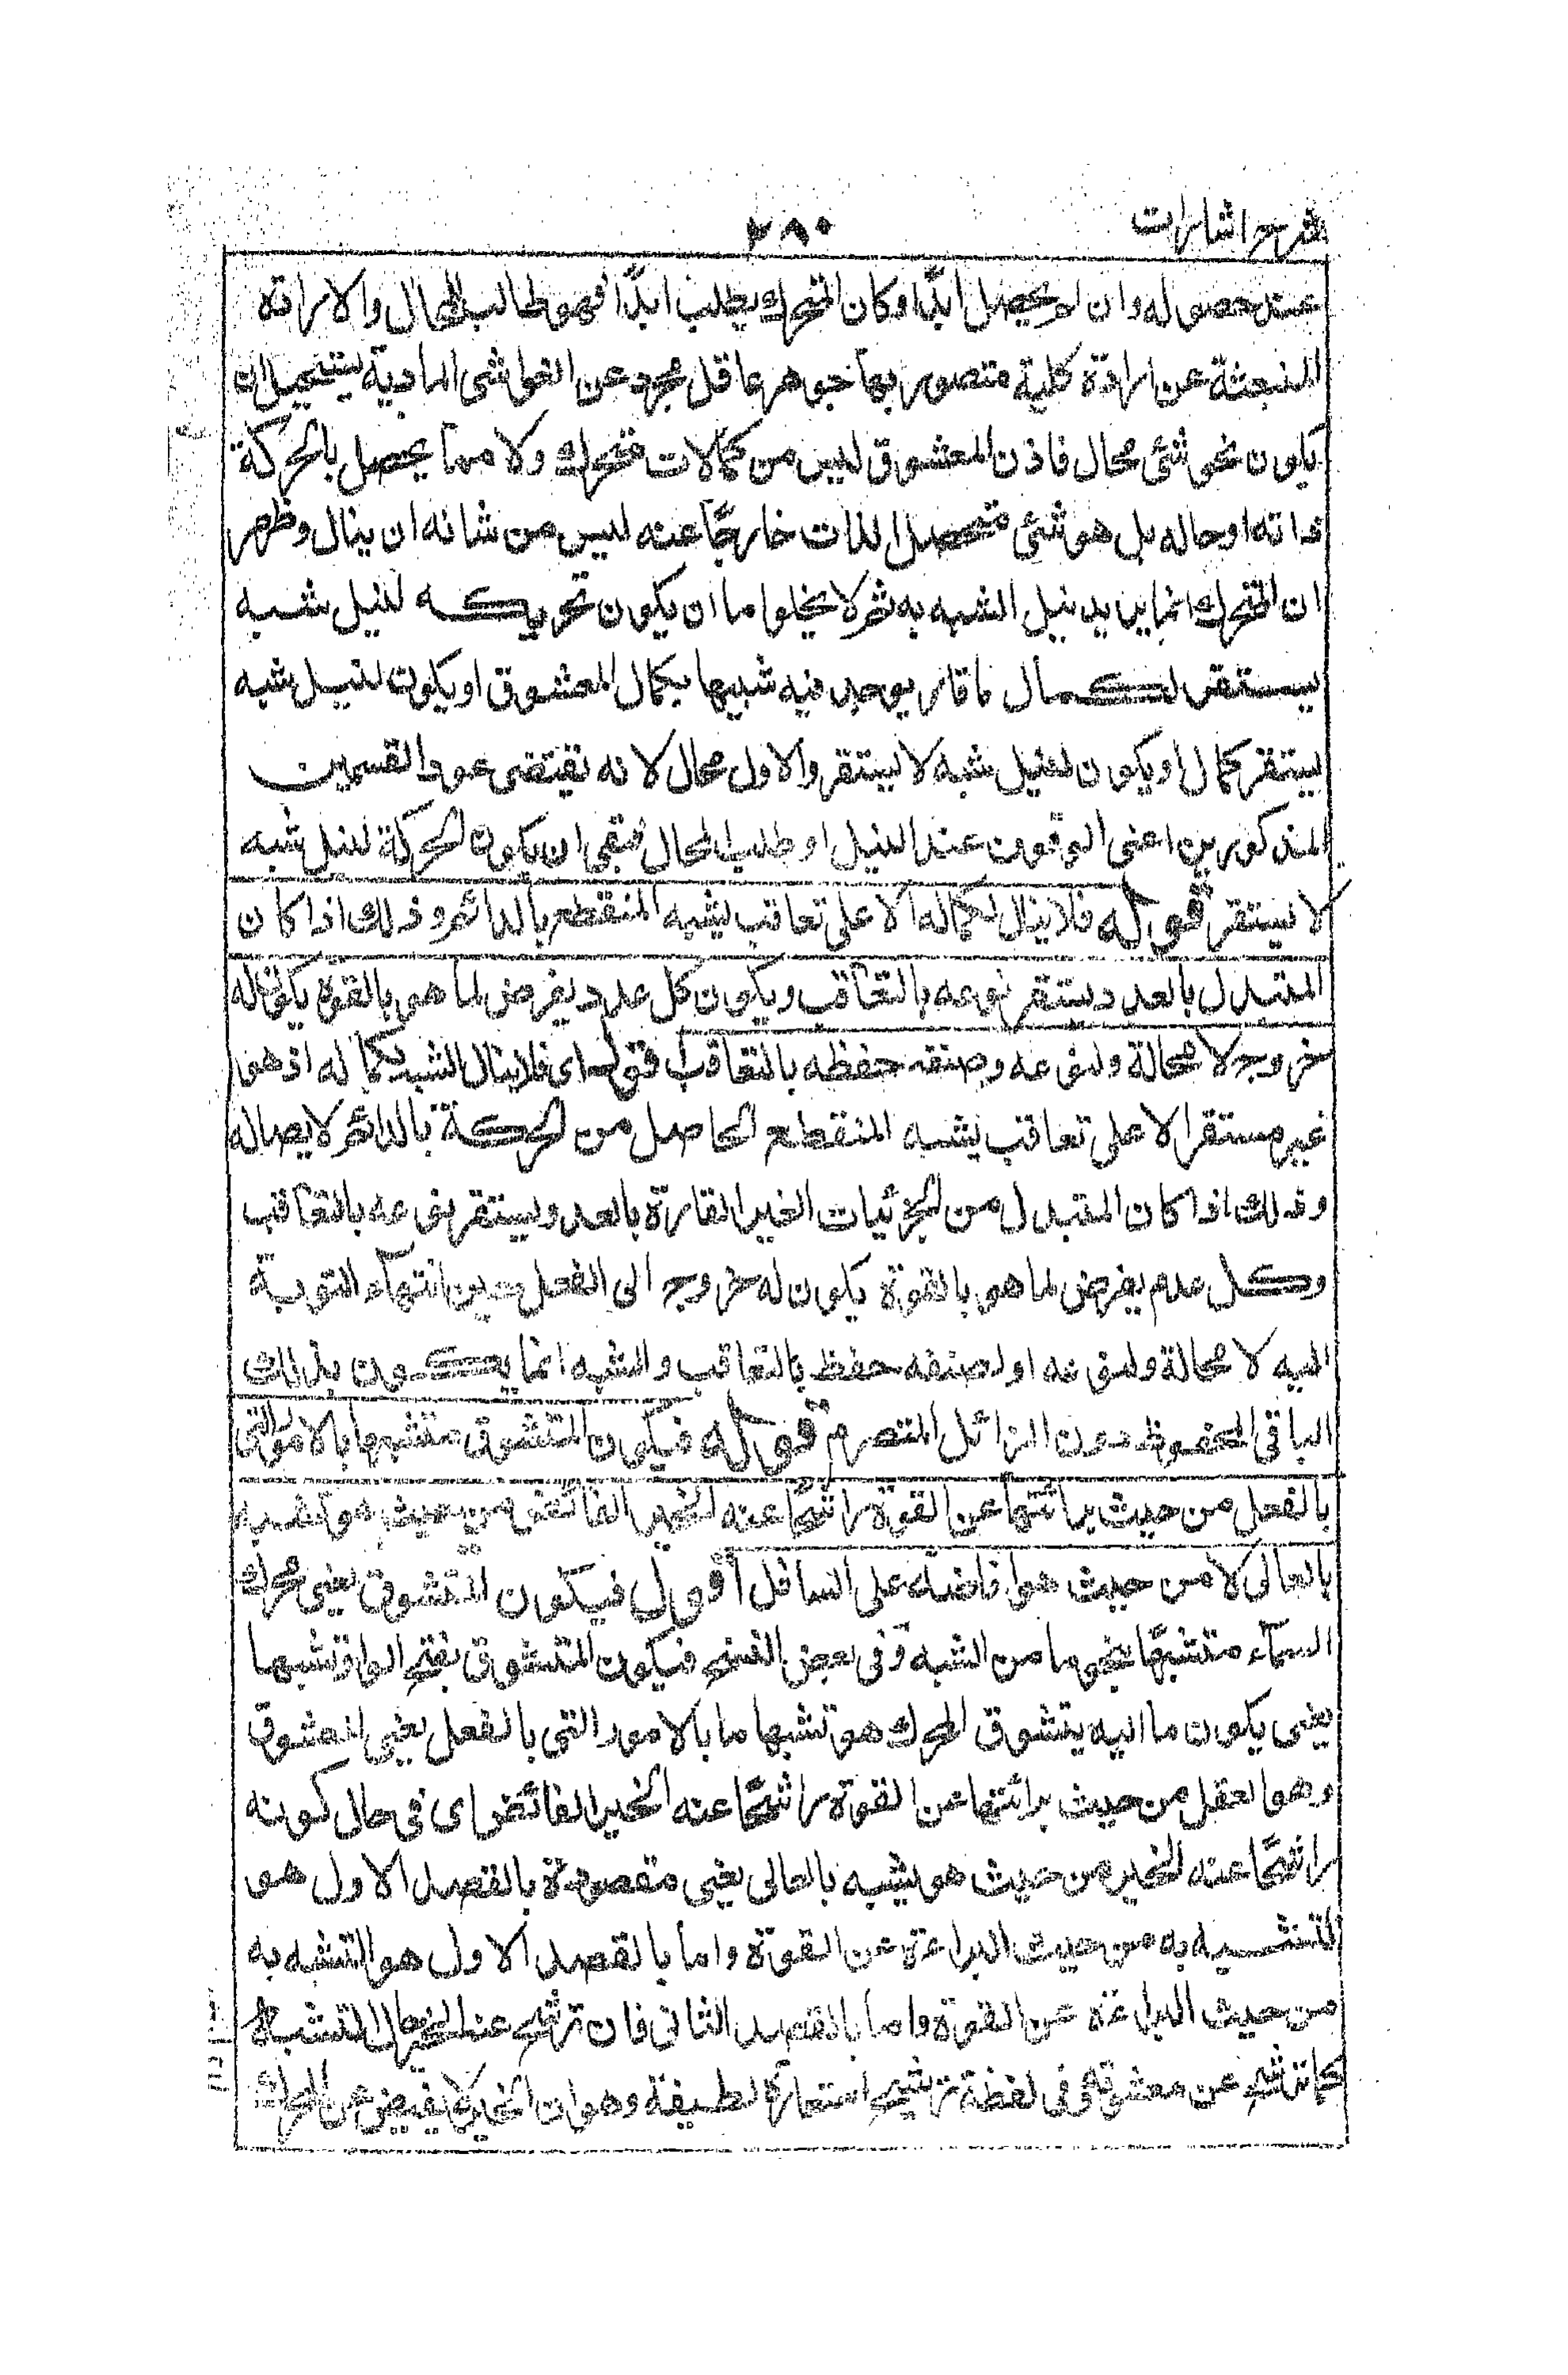 شرح اشارات
٢٨٠
عند حصوله وان لم يحصل ابدًا وكان المتحرك يطلب ابدًا فهو طالب للمحال والارادة
المنبعثة عن ارادة كلية متصور بها جوهر عاقل مجرد عن الغواشى المادية يستحيل ان
يكون نحو شئ محال فاذن المعشوق ليس من كمالات متحرك ولا مما يحصل بالحركة
ذاته او حاله بل هو شئ متحصل الذات خارجًا عنه ليس من شانه ان ينال وظهر
ان المتحرك انما يريد نيل الشبه به ثم لا يخلوا ما ان يكون تحريكه لنيل شبه
يستقر لكمال ما قار يوجد فيه شبيها بكمال المعشوق او يكون لنيل شبه
يستقر كمال او يكون لنيل شبه لا يستقر والاول محال لانه يقتضى عود القسمين
المذكورين اعنى الوقوف عند النيل او طلب المحال فبقى ان يكون الحركة لنيل شبه
لا يستقر قوله فلا ينال بكماله الا على تعاقب يشبه المنقطع بالدائم وذلك اذا كان
المتبدل بالعدد يستقر نوعه بالتعاقب ويكون كل عدد يفرض لما هو بالقوة يكون له
خروج لا محالة ولنوعه وصنفه حفظه بالتعاقب اقول اى فلا ينال الشبه بكماله اذ هو
غير مستقر الا على تعاقب يشبه المنقطع الحاصل من الحركة بالدائم لايصاله
وذلك اذا كان المتبدل من الجزئيات الغير القارة بالعدد ويستقر نوعه بالتعاقب
وكل عدم يفرض لما هو بالقوة يكون له خروج الى الفعل حين انتهاء النوبة
اليه لا محالة ولنوعه او لصنفه حفظ بالتعاقب والشبه انما يكون بذلك
الباقى المحفوظ دون الزائل المتصرم قوله فيكون المتشوق متشبها بالامور التى
بالفعل من حيث برائتها عن القوة راشحًا عنه الخير الفائض من حيث هو تشبه
بالعالى لا من حيث هو افاضة على السافل اقول فيكون المتشوق يعنى محرك
السماء متشبهًا بنحو ما من الشبه وفى بعض النسخ فيكون المتشوق بفتح الواو تشبها
يعنى يكون ما اليه يتشوق المحرك هو تشبها ما بالامور التى بالفعل يعنى المعشوق
وهو العقل من حيث برائتها عن القوة راشحًا عنه الخير الفائض اى فى حال كونه
راشحًا عنه الخير من حيث هو يشبه بالعالى يعنى مقصودة بالقصد الاول هو
التشبه به من حيث البراءة عن القوة واما بالقصد الاول هو التشبه به
من حيث البراءة عن القوة واما بالقصد الثانى فان ترشح عنه الخير المتشبه
كما ترشح عن معشوقه وفى لفظة ترشيح استعارة لطيفة وهو ان الخير لا يفيض عن المحرك